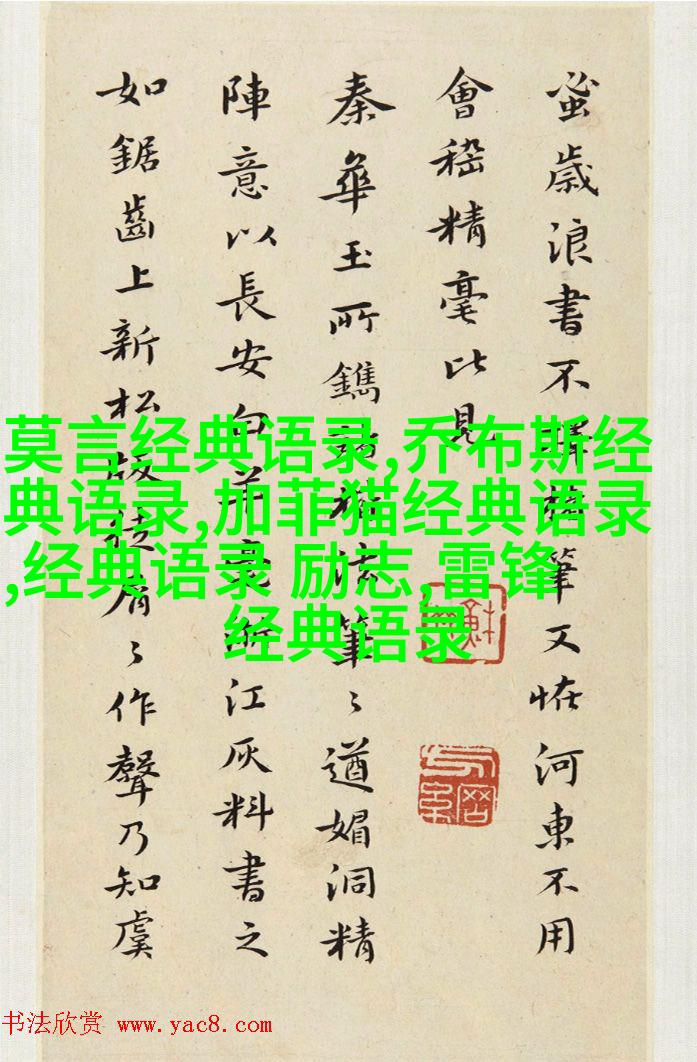 蚤歲浪書不筆又怪河東不用
會稽精毫比見
秦華玉所鐫法筆〻遒媚洞精
陣意以長安白羊毫江灰料書之
如鋸齒上新松版徒屑〻作聲乃知虞
莫言经典语录,乔布斯经
典语录,加菲猫经典语录
,经典语录 励志,雷锋
经典语录
书法欣赏 www.yac8.com